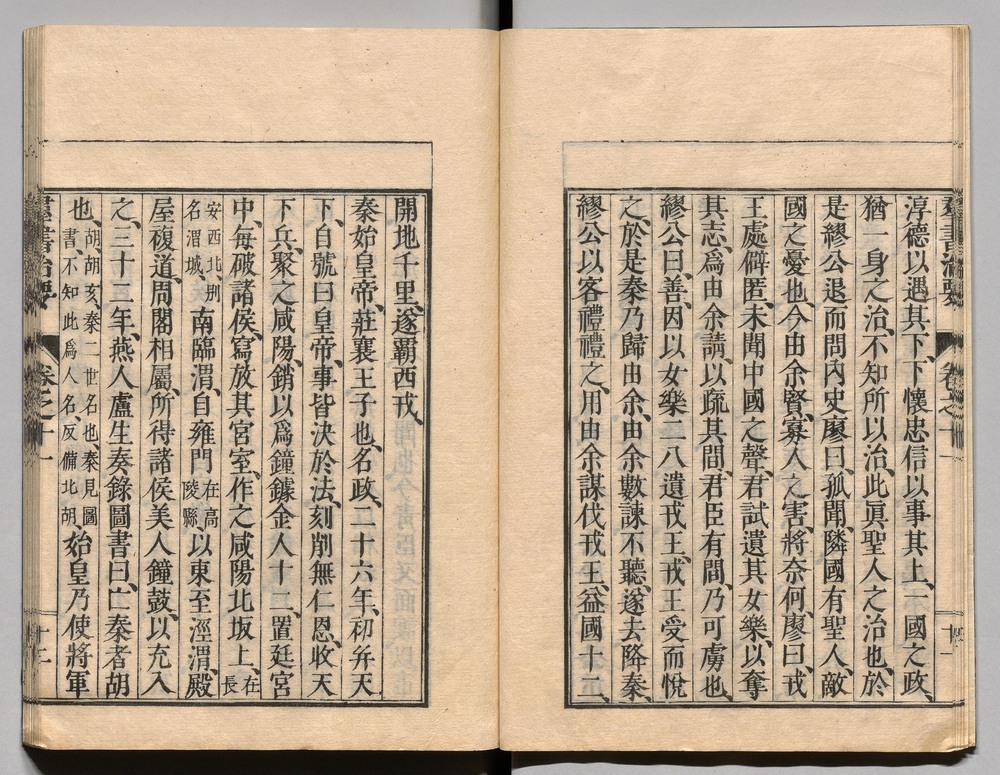 淳德以遇其下、下懷忠信以事其上、一國之政、
猶一身之治、不知所以治、此眞聖人之治也、於
是繆公退而問內史廖曰、孤聞、隣國有聖人、敵
國之憂也、今由余賢、寡人之害、將奈何、廖曰、戎
王處僻匿、未聞中國之聲、君試遺其女樂、以奪
其志、爲由余請、以疏其間、君臣有間、乃可虜也、
繆公曰、善、因以女樂二八遺戎王、戎王受而悅
之、於是秦乃歸由余、由余數諫不聽、遂去降秦、
繆公以客禮禮之、用由余謀伐戎王、益國十二、
開地千里、遂霸西戎、
秦始皇帝、莊襄王子也、名政、二十六年、初并天
下、自號曰皇帝、事皆決於法、刻削無仁恩、收天
下兵、聚之咸陽、銷以爲鐘鐻金人十二、置廷宮
中、每破諸侯、寫放其宮室、作之咸陽北坂上、在長
安西北、別名渭城、南臨渭、自雍門在高陵縣、以東至涇渭、殿
屋複道、周閣相屬、所得諸侯美人鐘鼓、以充入
之、三十二年、燕人盧生奏錄圖書曰、亡秦者胡
也、胡胡亥、秦二世名也、秦見圖書、不知此爲人名、反備北胡、始皇乃使將軍
羣書治要 卷之十一 十二